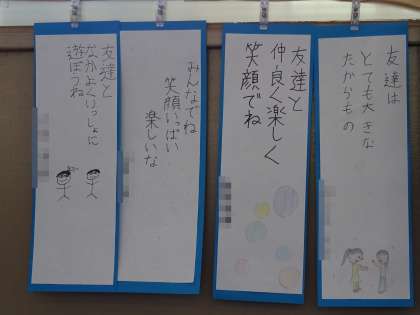 友達は
とても大きな
たからもの
友達と
仲良く楽しく
笑顔でね
みんなでね
笑顔いっぱい
楽しいな
友達と
なかよくいっしょに
遊ぼうね